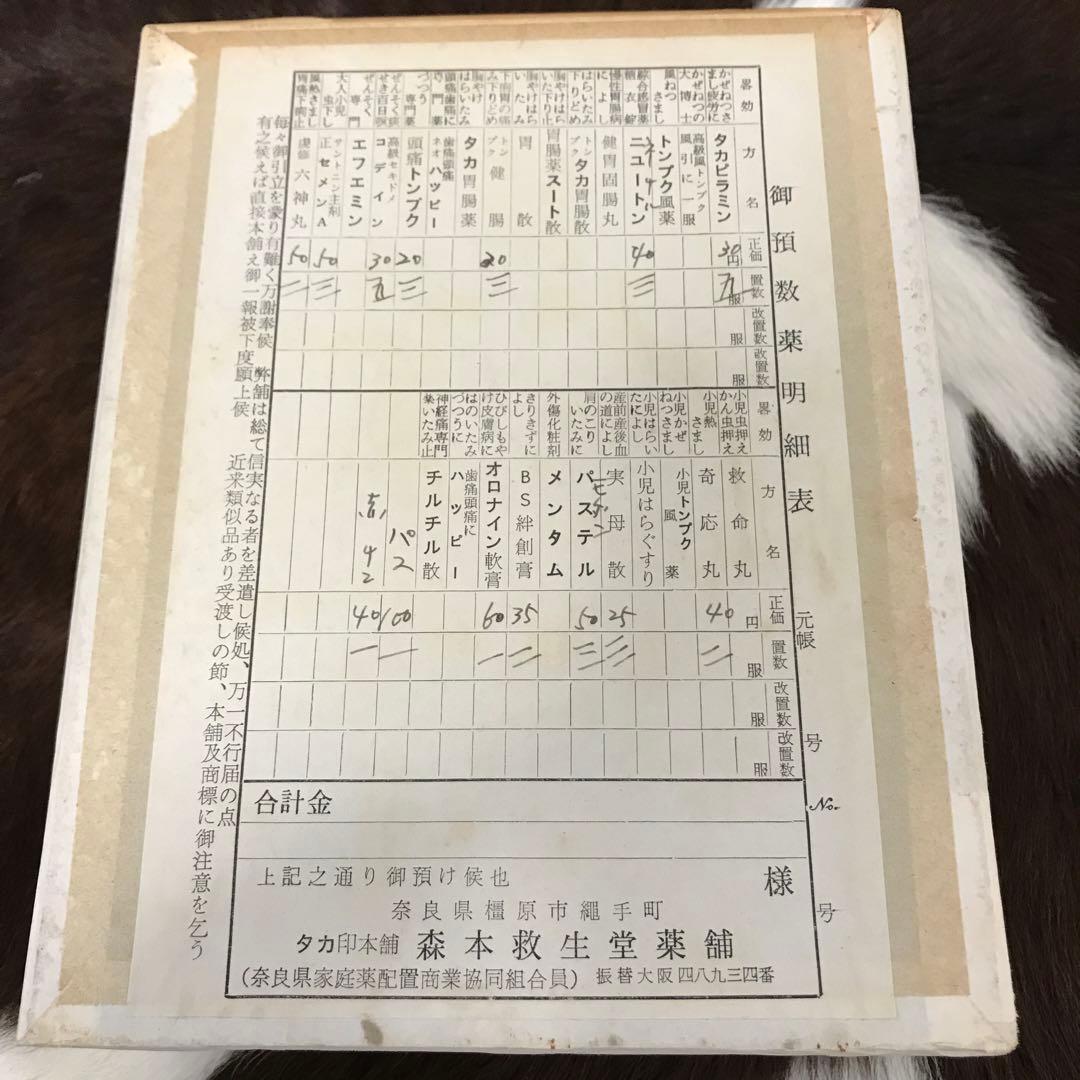 御預数薬明細表
元帳
号
No.
号
畧効
方名
正価
置数
改置数
改置数
かぜねつさまし疲労に
タカピラミン
30円
五服
服
服
かぜねつの大博士
高級風トンプク
風引に一服
風ねつさまし
トンプク風薬
綜合感冒薬糖衣錠
ニュートン
40
三
慢性胃腸病によし
健胃固腸丸
はらいたみ下りどめ
トンプク
タカ胃腸散
胸やけはらいた下り
胃腸薬スート散
胸やけはらいた
胃散
下痢胃の痛み下りどめ
トンプク
健腸
20
三
胸やけはらいたみ
タカ胃腸薬
頭痛歯痛に専門薬
歯痛頭痛
ネオハッピー
づつう専門薬
頭痛トンプク
20
三
ぜんそく痰せき百日咳
高級セキドメ
コデイン
30
五
ぜんそく専門
エフエミン
大人小児虫下し
サントニン主剤
正セメンA
50
三
風熱さまし胃痛下痢止
虔修六神丸
50
三
畧効
方名
正価
置数
改置数
改置数
小児虫押えかん虫押え
救命丸
円
服
服
服
小児熱さまし
奇応丸
40
二
小児かぜねつさまし
小児トンプク風薬
小児はらいたによし
小児はらぐすり
産前産後血の道によし
実母散
25
三
肩のこりいたみに
パステル
50
三
外傷化粧剤
メンタム
きりきずによし
BS絆創膏
35
二
ひびしもやけ皮膚病に
オロナイン軟膏
60
一
はのいたみづつうに
歯痛頭痛に
ハッピー
神経痛専門薬いたみ止
チルチル散
パス
100
一
40
一
合計金
様
上記之通り御預け候也
奈良県橿原市繩手町
タカ印本舗 森本救生堂薬舗
(奈良県家庭薬配置商業協同組合員) 振替大阪四八九三四番
毎々御引立を蒙り有難く万謝奉候 弊舗は総て信実なる者を差遣し候処、万一不行届の点
有之候えば直接本舗え御一報被下度願上候 近来類似品あり受渡しの節、本舗及商標に御注意を乞う